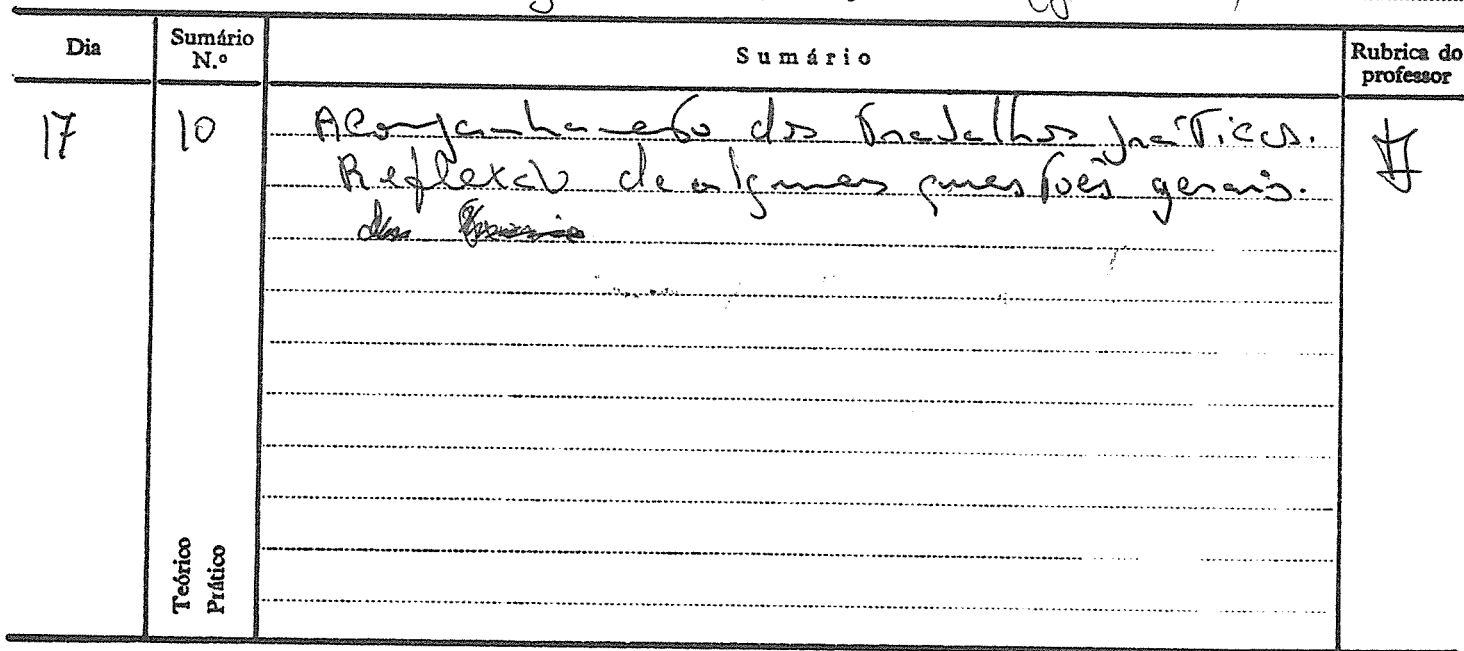 Dia
Sumário N.º
Sumário
Rubrica do professor
17
10
Acompanhamento dos trabalhos práticos.
Reflexão de algumas questões gerais.
Teórico
Prático